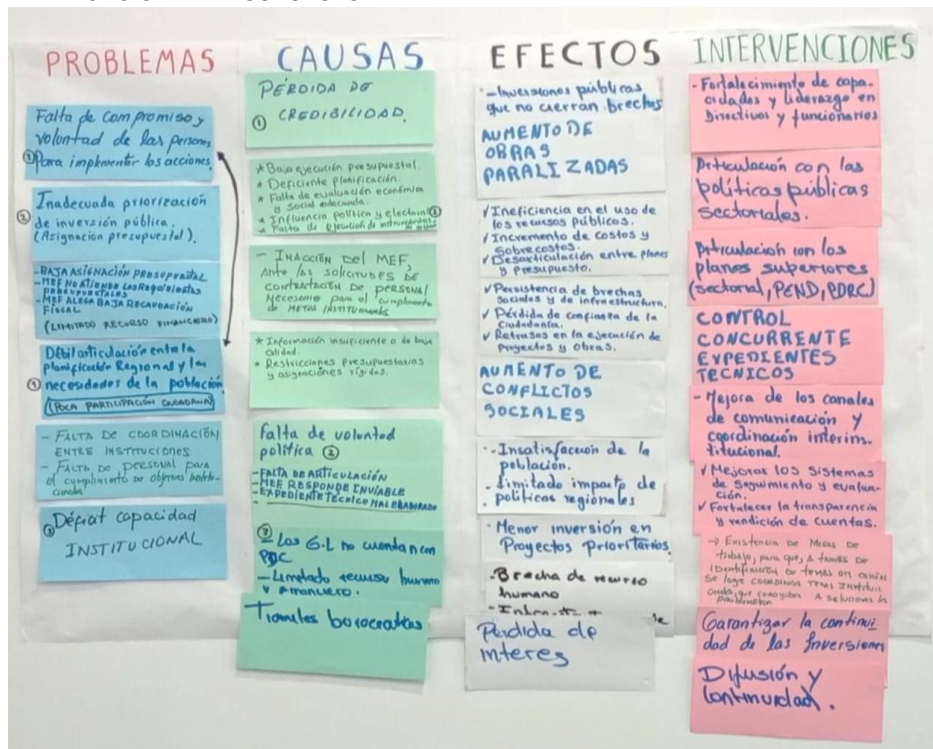 PROBLEMAS
Falta de compromiso y
voluntad de las personas
① Para implementar las acciones.
② Inadecuada priorización
de inversión pública.
(Asignación presupuestal).
- BAJA ASIGNACIÓN PRESUPUESTAL
- MEF NO ATIENDE LOS REQUERIMIENTOS
PRESUPUESTALES
- MEF ALEGA BAJA RECAUDACIÓN
FISCAL
(LIMITADO RECURSO FINANCIERO)
Débil articulación entre la
Planificación Regional y las
① necesidades de la población
(POCA PARTICIPACIÓN CIUDADANA)
- FALTA DE COORDINACIÓN
ENTRE INSTITUCIONES
- FALTA DE PERSONAL para
el cumplimiento de objetivos
③ Déficit capacidad
INSTITUCIONAL
CAUSAS
PÉRDIDA DE
① CREDIBILIDAD.
* Baja ejecución presupuestal.
* Deficiente planificación.
* Falta de evaluación económica
y social adecuada.
* Influencia política y electoral ②
* Falta de ejecución de instrumentos
- INACCIÓN DEL MEF,
Ante las solicitudes DE
CONTRATACIÓN DE PERSONAL
Necesario para el cumplimiento
DE METAS INSTITUCIONALES
* Información insuficiente o de baja
calidad.
* Restricciones presupuestarias
y asignaciones rígidas.
Falta de voluntad
política ②
- FALTA DE ARTICULACIÓN
- MEF RESPONDE INVIABLE
- EXPEDIENTE TECNICO MAL ELABORADO
③
- Los G.L no cuentan con
PDC
- Limitado recurso humano
y financiero.
Tramites burocraticos
EFECTOS
- Inversiones públicas
que no cierran brechas
AUMENTO DE
OBRAS
PARALIZADAS
✓ Ineficiencia en el uso de
los recursos públicos.
✓ Incremento de costos y
sobrecostos.
✓ Desarticulación entre planes
y presupuesto.
✓ Persistencia de brechas
sociales y de infraestructura.
✓ Pérdida de confianza de la
ciudadanía.
✓ Retrasos en la ejecución de
proyectos y obras.
AUMENTO DE
CONFLICTOS
SOCIALES
- Insatisfacción de la
población.
- Limitado impacto de
políticas regionales
- Menor inversión en
Proyectos prioritarios.
- Brecha de recurso
humano
Perdida de
interes
INTERVENCIONES
- Fortalecimiento de capa-
cidades y liderazgo en
Directivos y funcionarios
Articulación con las
políticas públicas
sectoriales.
Articulación con los
planes superiores
(sectorial, PEND, PDRC)
CONTROL
CONCURRENTE
EXPEDIENTES
TECNICOS
- Mejora de los canales
de comunicación y
coordinación interins-
titucional.
✓ Mejorar los sistemas
de seguimiento y evalua-
ción.
✓ Fortalecer la transparencia
y rendición de cuentas.
→ Existencia de Mesas de
trabajo, para que, A través de
identificación de temas en común
se logre coordinar temas
A solucionar la
Garantizar la continui
dad de las Inversiones
Difusión y
Continuidad.